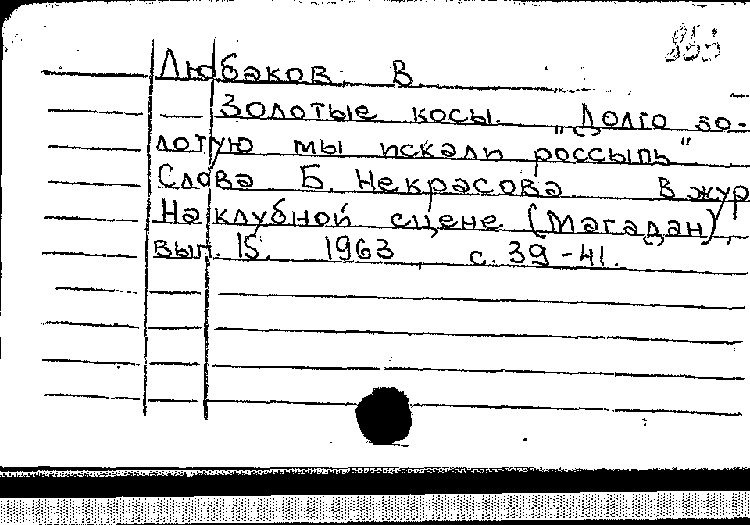 Любаков В.
Золотые косы. "Долго зо-
лотую мы искали россыпь".
Слова Б. Некрасова. В жур
На клубной сцене. (Магадан),
вып. 15. 1963, с. 39-41.